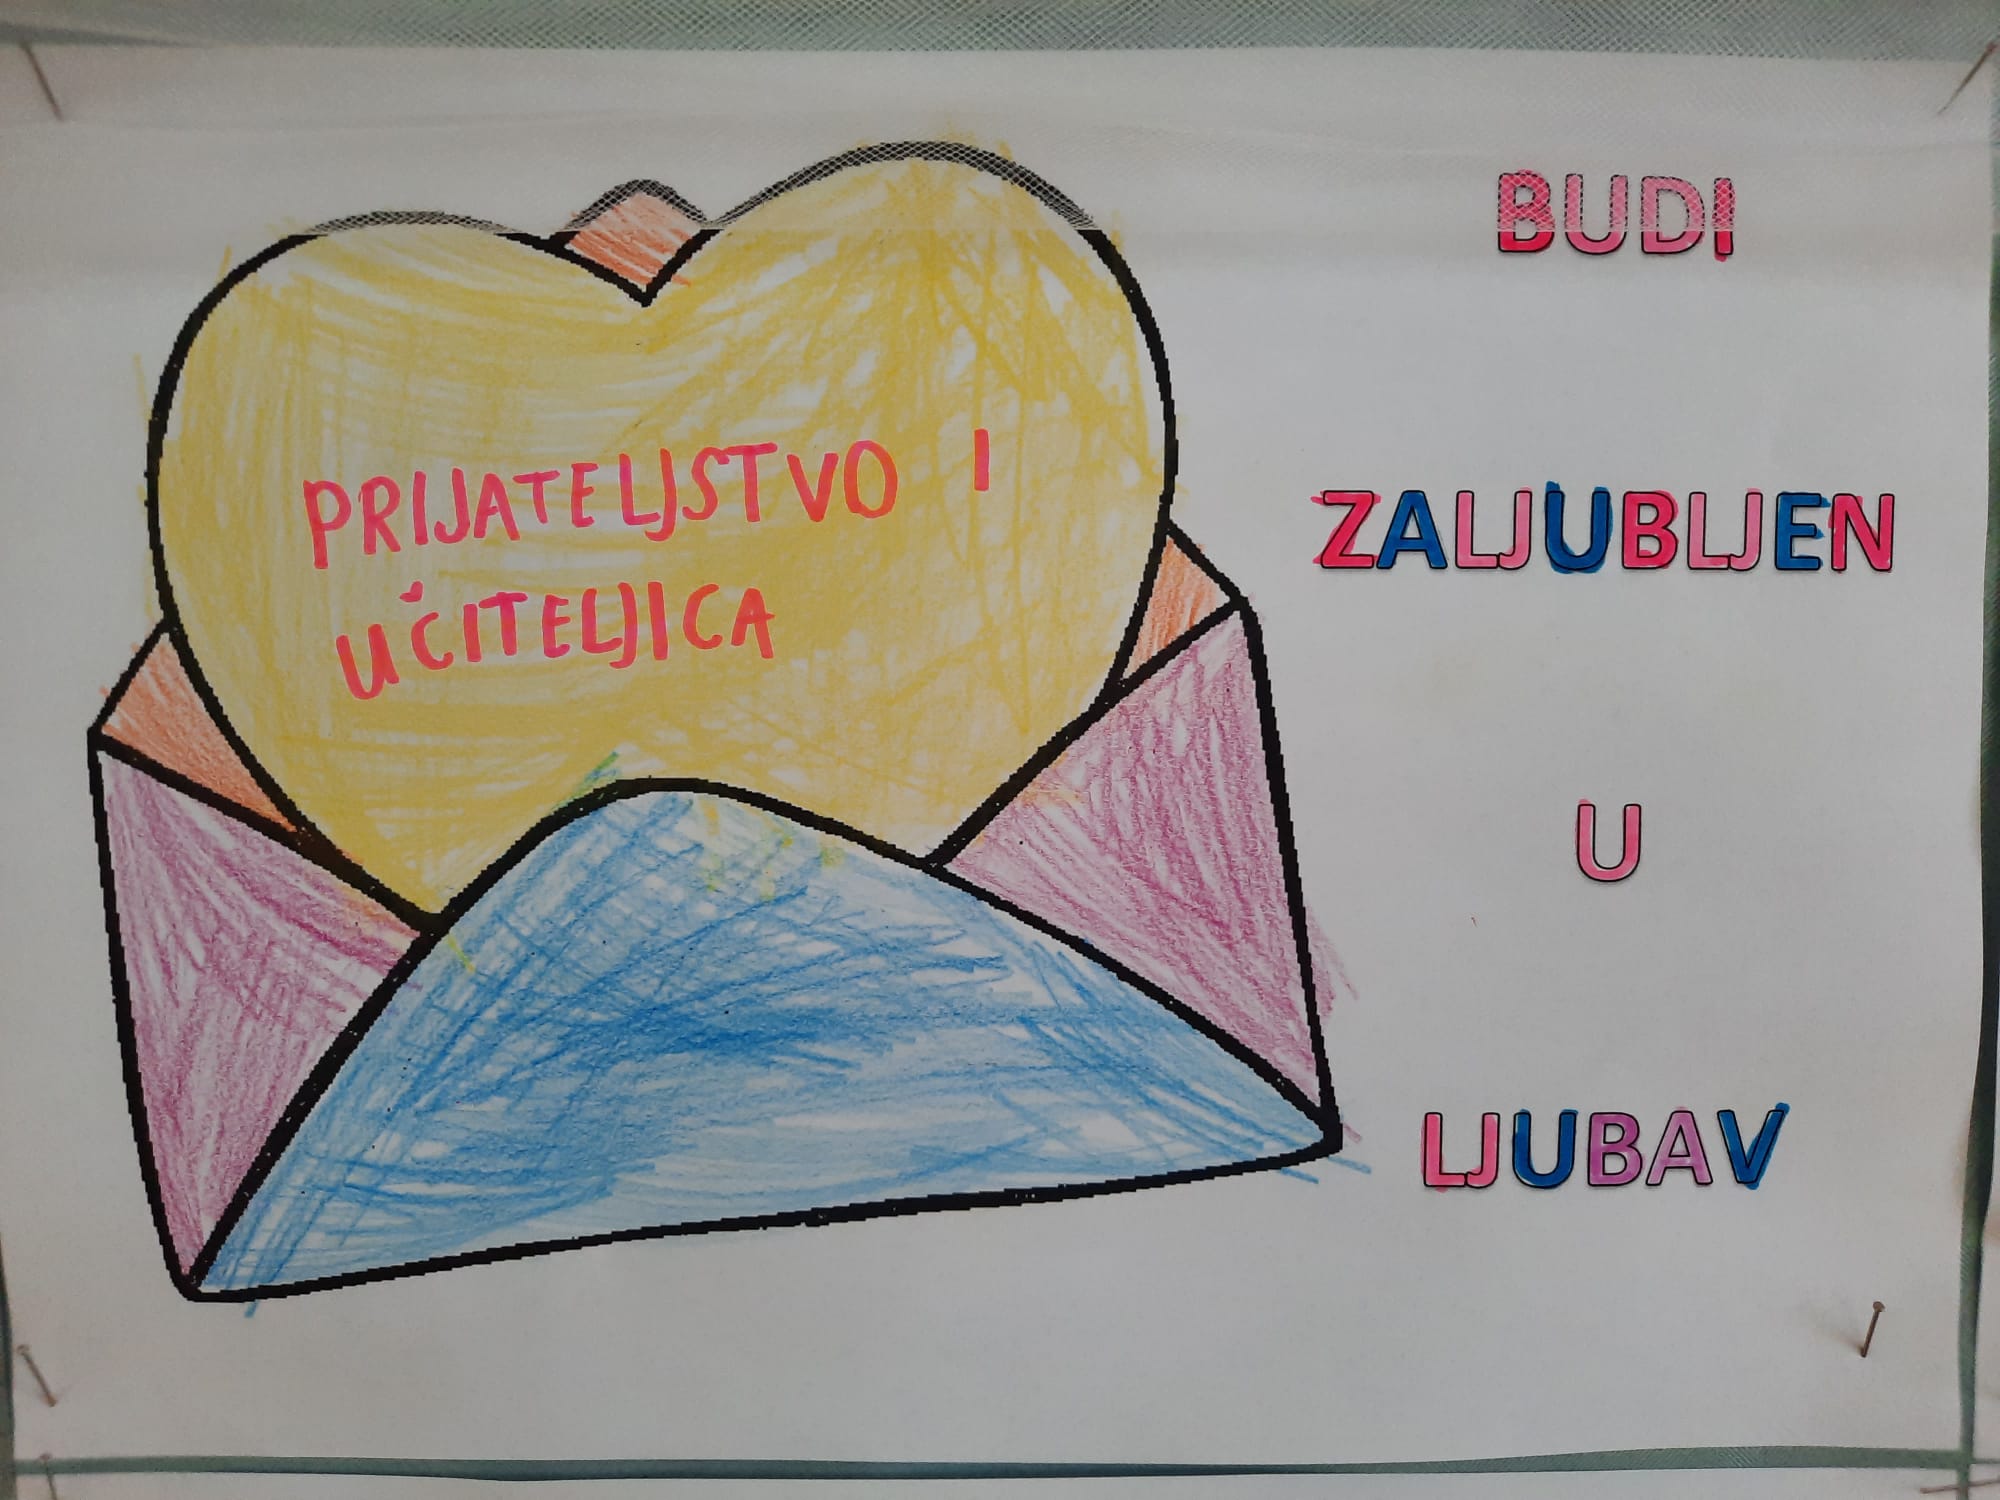 PRIJATELJSTVO I
UČITELJICA
BUDI
ZALJUBLJEN
U
LJUBAV